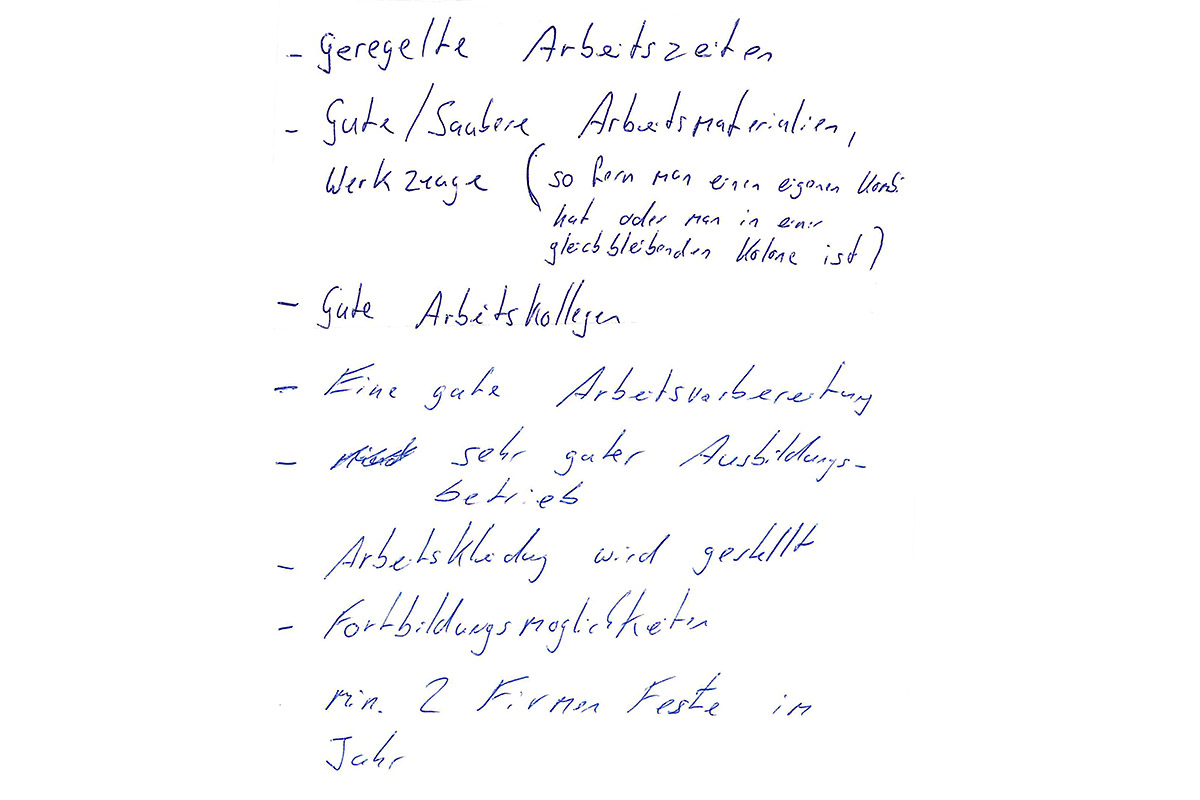 - Geregelte Arbeitszeiten
- Gute/Saubere Arbeitsmaterialien,
Werkzeuge (so fern man einen eigenen Kombi
hat oder man in einer
gleichbleibenden Kolone ist)
- Gute Arbeitskollegen
- Eine gute Arbeitsvorbereitung
- sehr guter Ausbildungs-
betrieb
- Arbeitskleidung wird gestellt
- Fortbildungsmöglichkeiten
min. 2 Firmen Feste im
Jahr